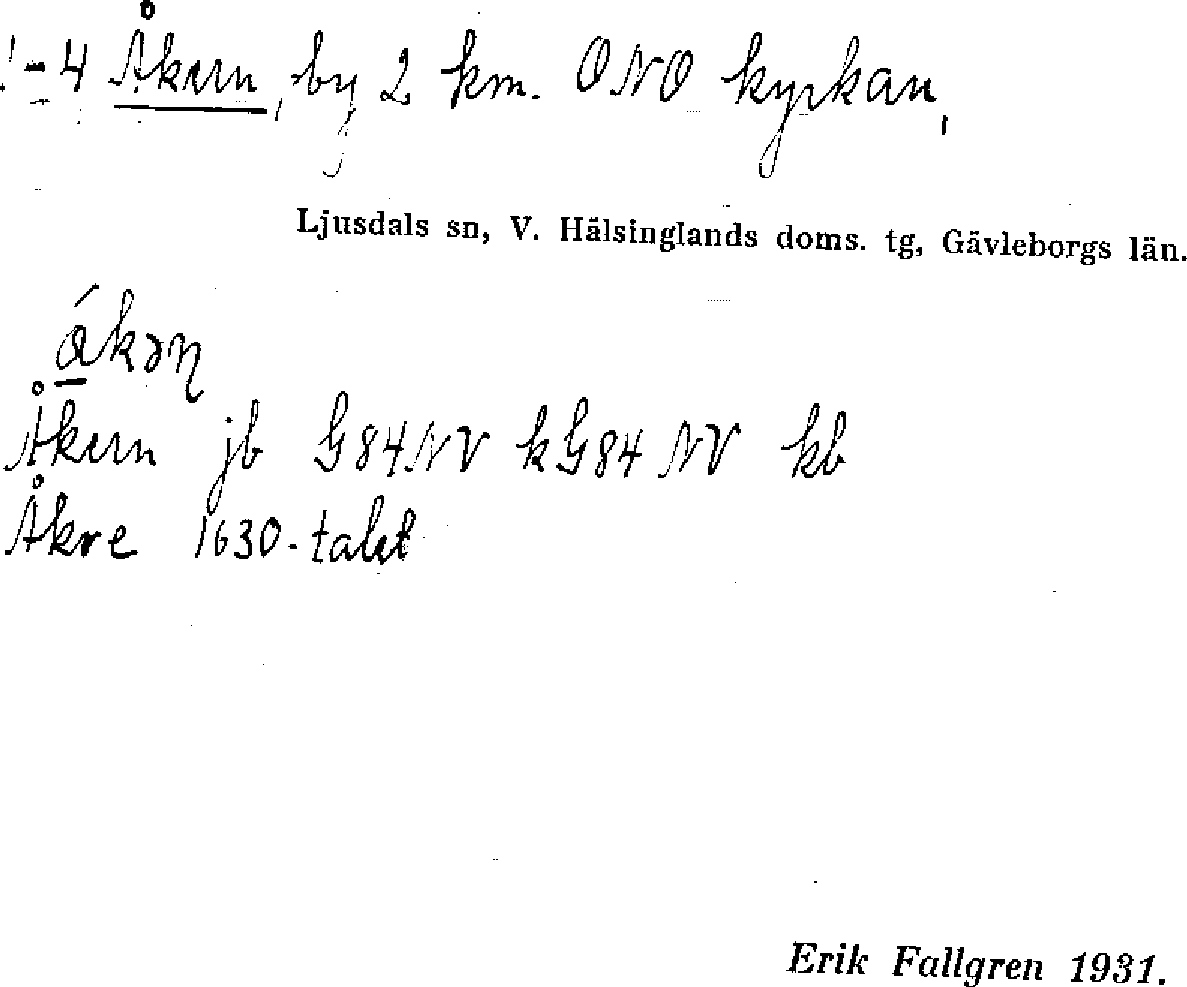 1-4 Åkern, by 2 km. ONO kyrkan,
Ljusdals sn, V. Hälsinglands doms. tg, Gävleborgs län.
Åkern jb G84NV kG84 NV kb
Åkre 1630-talet
Erik Fallgren 1931.